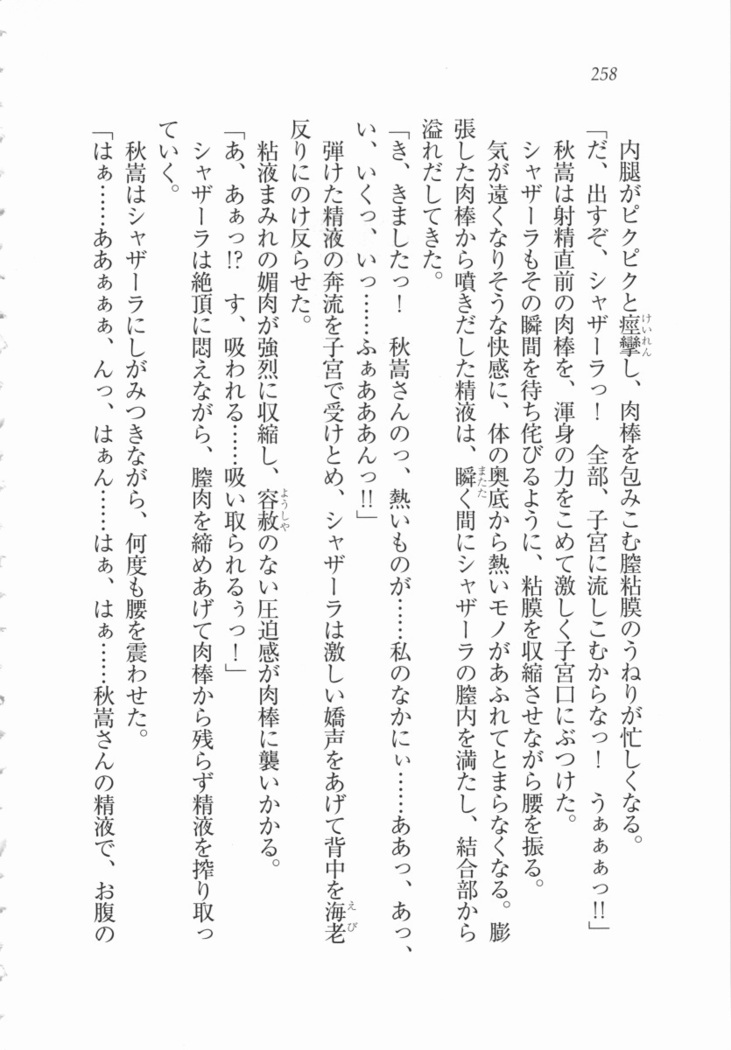 258
内腿がピクピクと痙攣し、肉棒を包みこむ膣粘膜のうねりが忙しくなる。
けいれん
「だ、出すぞ、シャザーラっ！　全部、子宮に流しこむからなっ！　うぁぁぁっ!!」
秋嵩は射精直前の肉棒を、渾身の力をこめて激しく子宮口にぶつけた。
シャザーラもその瞬間を待ち侘びるように、粘膜を収縮させながら腰を振る。
気が遠くなりそうな快感に、体の奥底から熱いモノがあふれてとまらなくなる。膨
張した肉棒から噴きだした精液は、瞬く間にシャザーラの膣内を満たし、結合部から
またた
溢れだしてきた。
「き、きましたっ！　秋嵩さんのっ、熱いものが……私のなかにぃ……ああっ、あっ、
い、いくっ、いっ……ふぁあああんっ!!」
弾けた精液の奔流を子宮で受けとめ、シャザーラは激しい嬌声をあげて背中を海老
えび
反りにのけ反らせた。
粘液まみれの媚肉が強烈に収縮し、容赦のない圧迫感が肉棒に襲いかかる。
ようしゃ
「あ、あぁっ!?　す、吸われる……吸い取られるぅっ！」
シャザーラは絶頂に悶えながら、膣肉を締めあげて肉棒から残らず精液を搾り取っ
ていく。
秋嵩はシャザーラにしがみつきながら、何度も腰を震わせた。
「はぁ……ああぁぁぁ、んっ、はぁん……はぁ、はぁ……秋嵩さんの精液で、お腹の